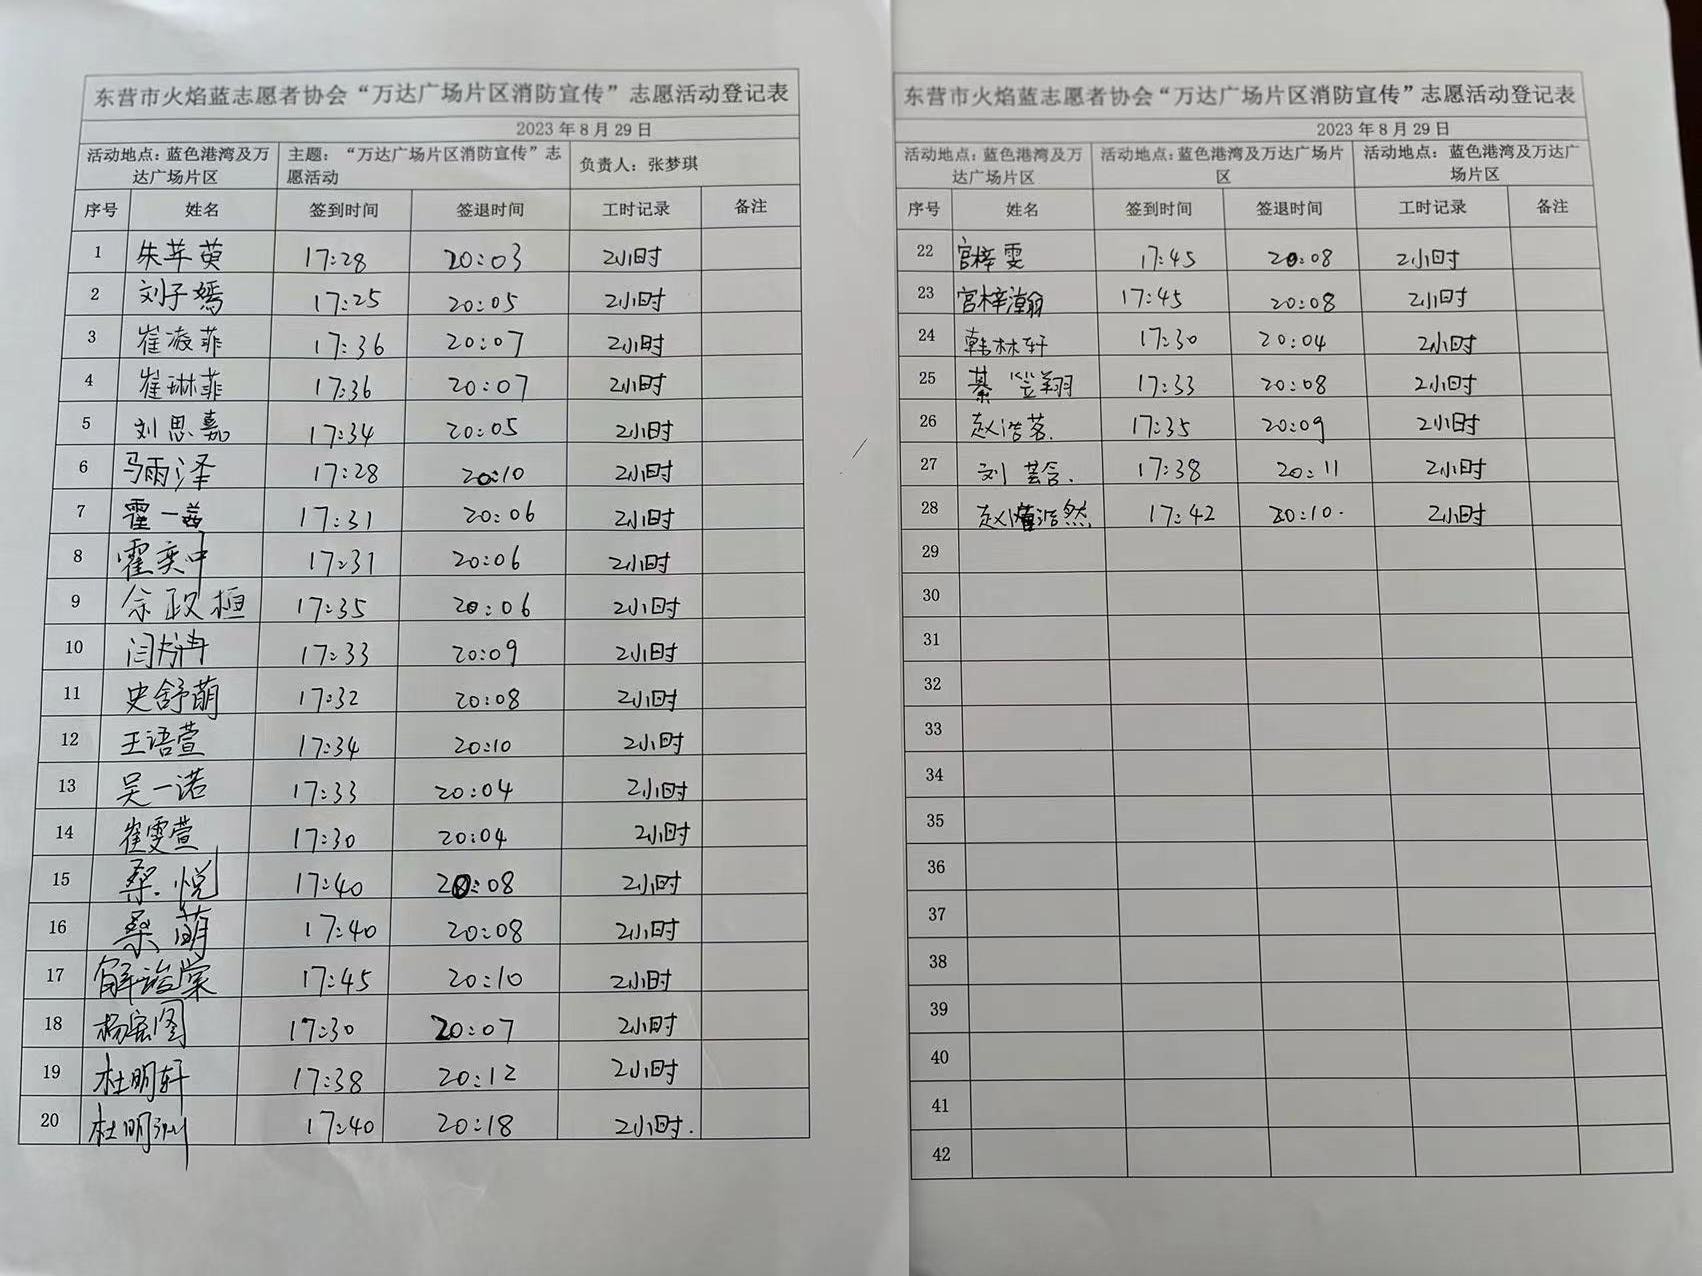 东营市火焰蓝志愿者协会“万达广场片区消防宣传”志愿活动登记表
2023年8月29日
活动地点：蓝色港湾及万达广场片区 主题：“万达广场片区消防宣传”志愿活动 负责人：张梦琪
序号 姓名 签到时间 签退时间 工时记录 备注
1 朱苹萸 17:28 20:03 2小时
2 刘子嫣 17:25 20:05 2小时
3 崔凌菲 17:36 20:07 2小时
4 崔琳菲 17:36 20:07 2小时
5 刘思嘉 17:34 20:05 2小时
6 马雨泽 17:28 20:10 2小时
7 霍一茜 17:31 20:06 2小时
8 霍奕中 17:31 20:06 2小时
9 余政桓 17:35 20:06 2小时
10 闫 17:33 20:09 2小时
11 史舒萌 17:32 20:08 2小时
12 王语萱 17:34 20:10 2小时
13 吴一诺 17:33 20:04 2小时
14 崔雯萱 17:30 20:04 2小时
15 桑悦 17:40 20:08 2小时
16 桑萌 17:40 20:08 2小时
17 解诒棠 17:45 20:10 2小时
18 杨宏图 17:30 20:07 2小时
19 杜明轩 17:38 20:12 2小时
20 杜明 17:40 20:18 2小时.
东营市火焰蓝志愿者协会“万达广场片区消防宣传”志愿活动登记表
2023年8月29日
活动地点：蓝色港湾及万达广场片区 活动地点：蓝色港湾及万达广场片区 活动地点：蓝色港湾及万达广场片区
序号 姓名 签到时间 签退时间 工时记录 备注
22 宫梓雯 17:45 20:08 2小时
23 宫梓瀚 17:45 20:08 2小时
24 韩林轩 17:30 20:04 2小时
25 綦笠翔 17:33 20:08 2小时
26 赵浩茗. 17:35 20:09 2小时
27 刘芸含. 17:38 20:11 2小时
28 赵浩然. 17:42 20:10. 2小时
29
30
31
32
33
34
35
36
37
38
39
40
41
42